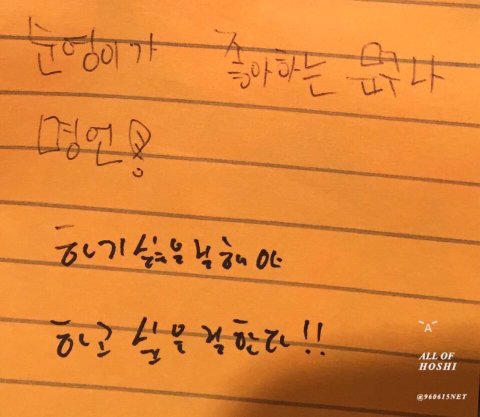 순영이가 좋아하는 문구나
명언!
하기 싫은 걸 해야
하고 싶은 걸 한다!!
A
ALL OF
HOSHI
@960615NET